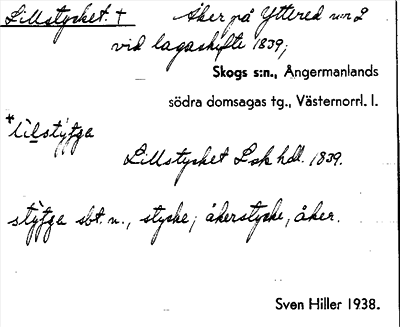 Lillstycket. + Åker på Yttered n:r 2
vid lagaskifte 1839;
Skogs s:n., Ångermanlands
södra domsagas tg., Västernorrl. l.
Lillstycket Lsk hdl. 1839.
sbt. n., stycke; åkerstycke, åker.
Sven Hiller 1938.